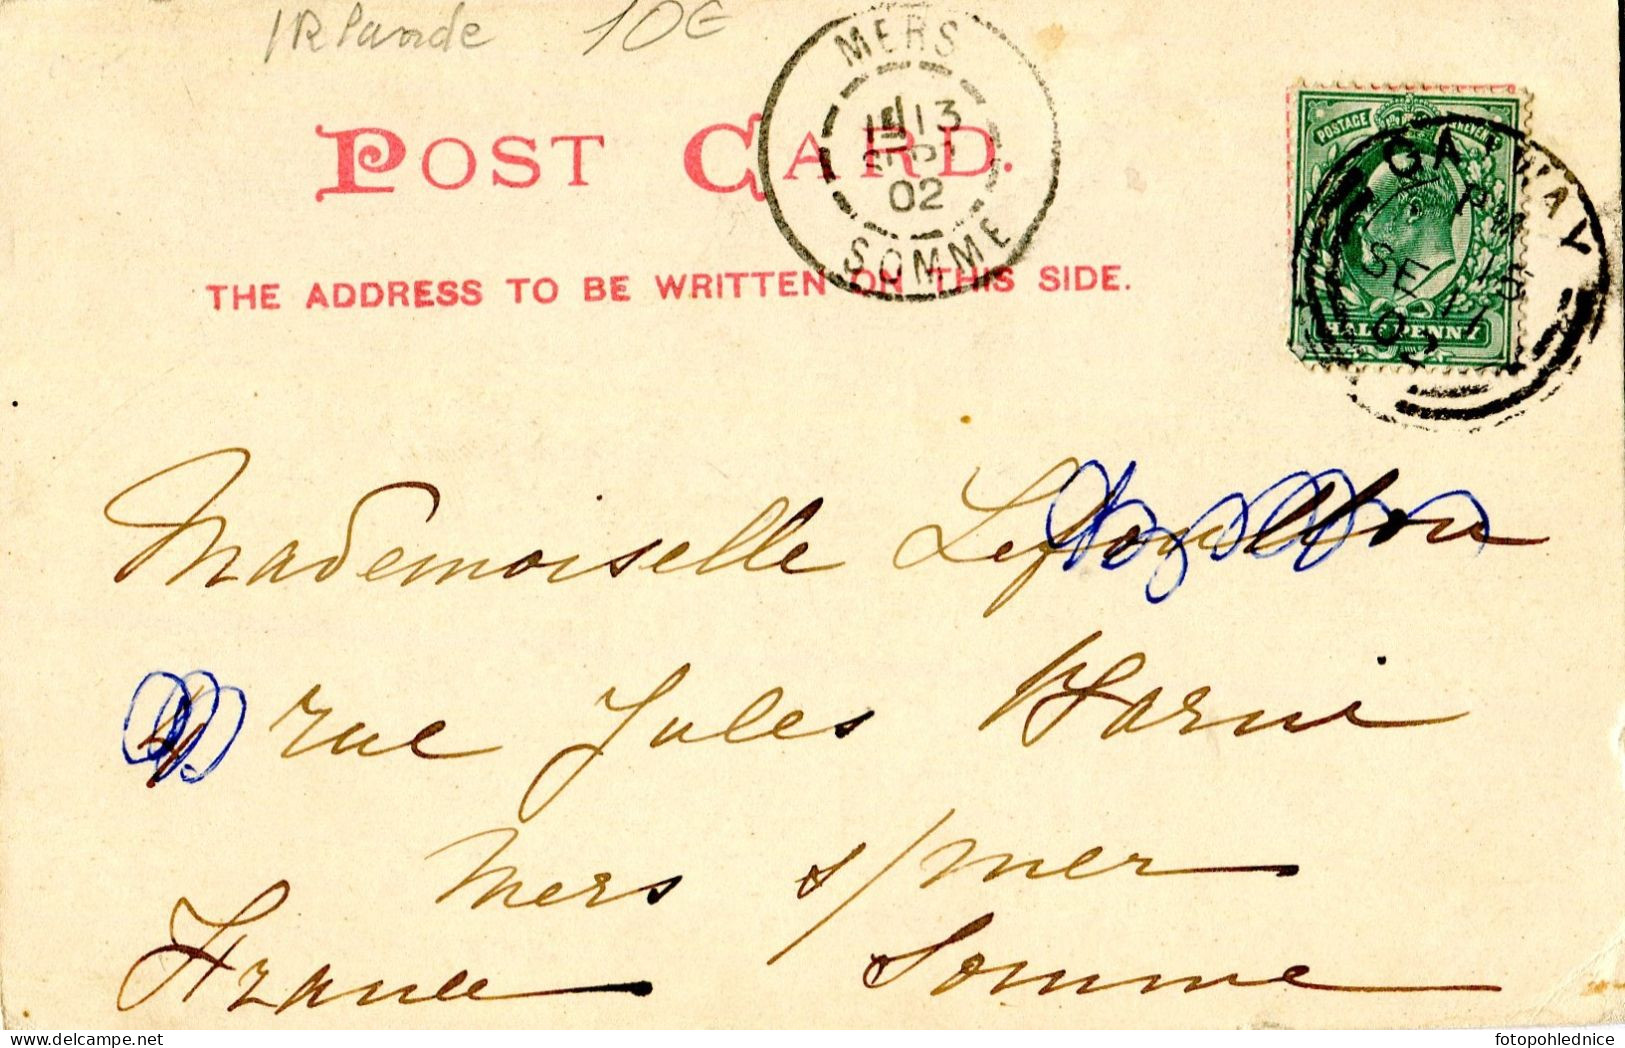 IRlande 10€
POST CARD.
THE ADDRESS TO BE WRITTEN ON THIS SIDE.
MERS
13
SEPT
02
SOMME
POSTAGE REVENUE
HALFPENNY
GALWAY
PM
SE 11
02
Mademoiselle
rue Jules Barni
Mers s/mer
Somme
France
fotopohlednice